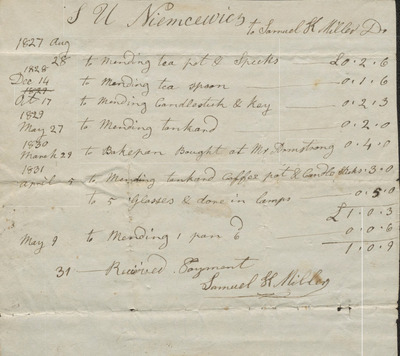 S U Niemcewics
to Samuel H Miller Dr
1827 Aug
28 to Mending tea pot & Specks £0.2.6
1828
Dec 14 to Mending tea spoon 0.1.6
1829
Oct 17 to Mending Candlestick & Key 0.2.3
1829
May 27 to Mending tankard 0.2.0
1830
March 29 to Bakepan Bought at Mr Armstrong 0.4.0
1831
April 5 to Mending tankard Coffee pot & Candle Sticks 3.0
to 5 Glosses & done in Lamps 0.5.0
£1.0.3
May 9 to Mending 1 pan 6 0.0.6
1.0.9
31 Received Payment
Samuel H Miller